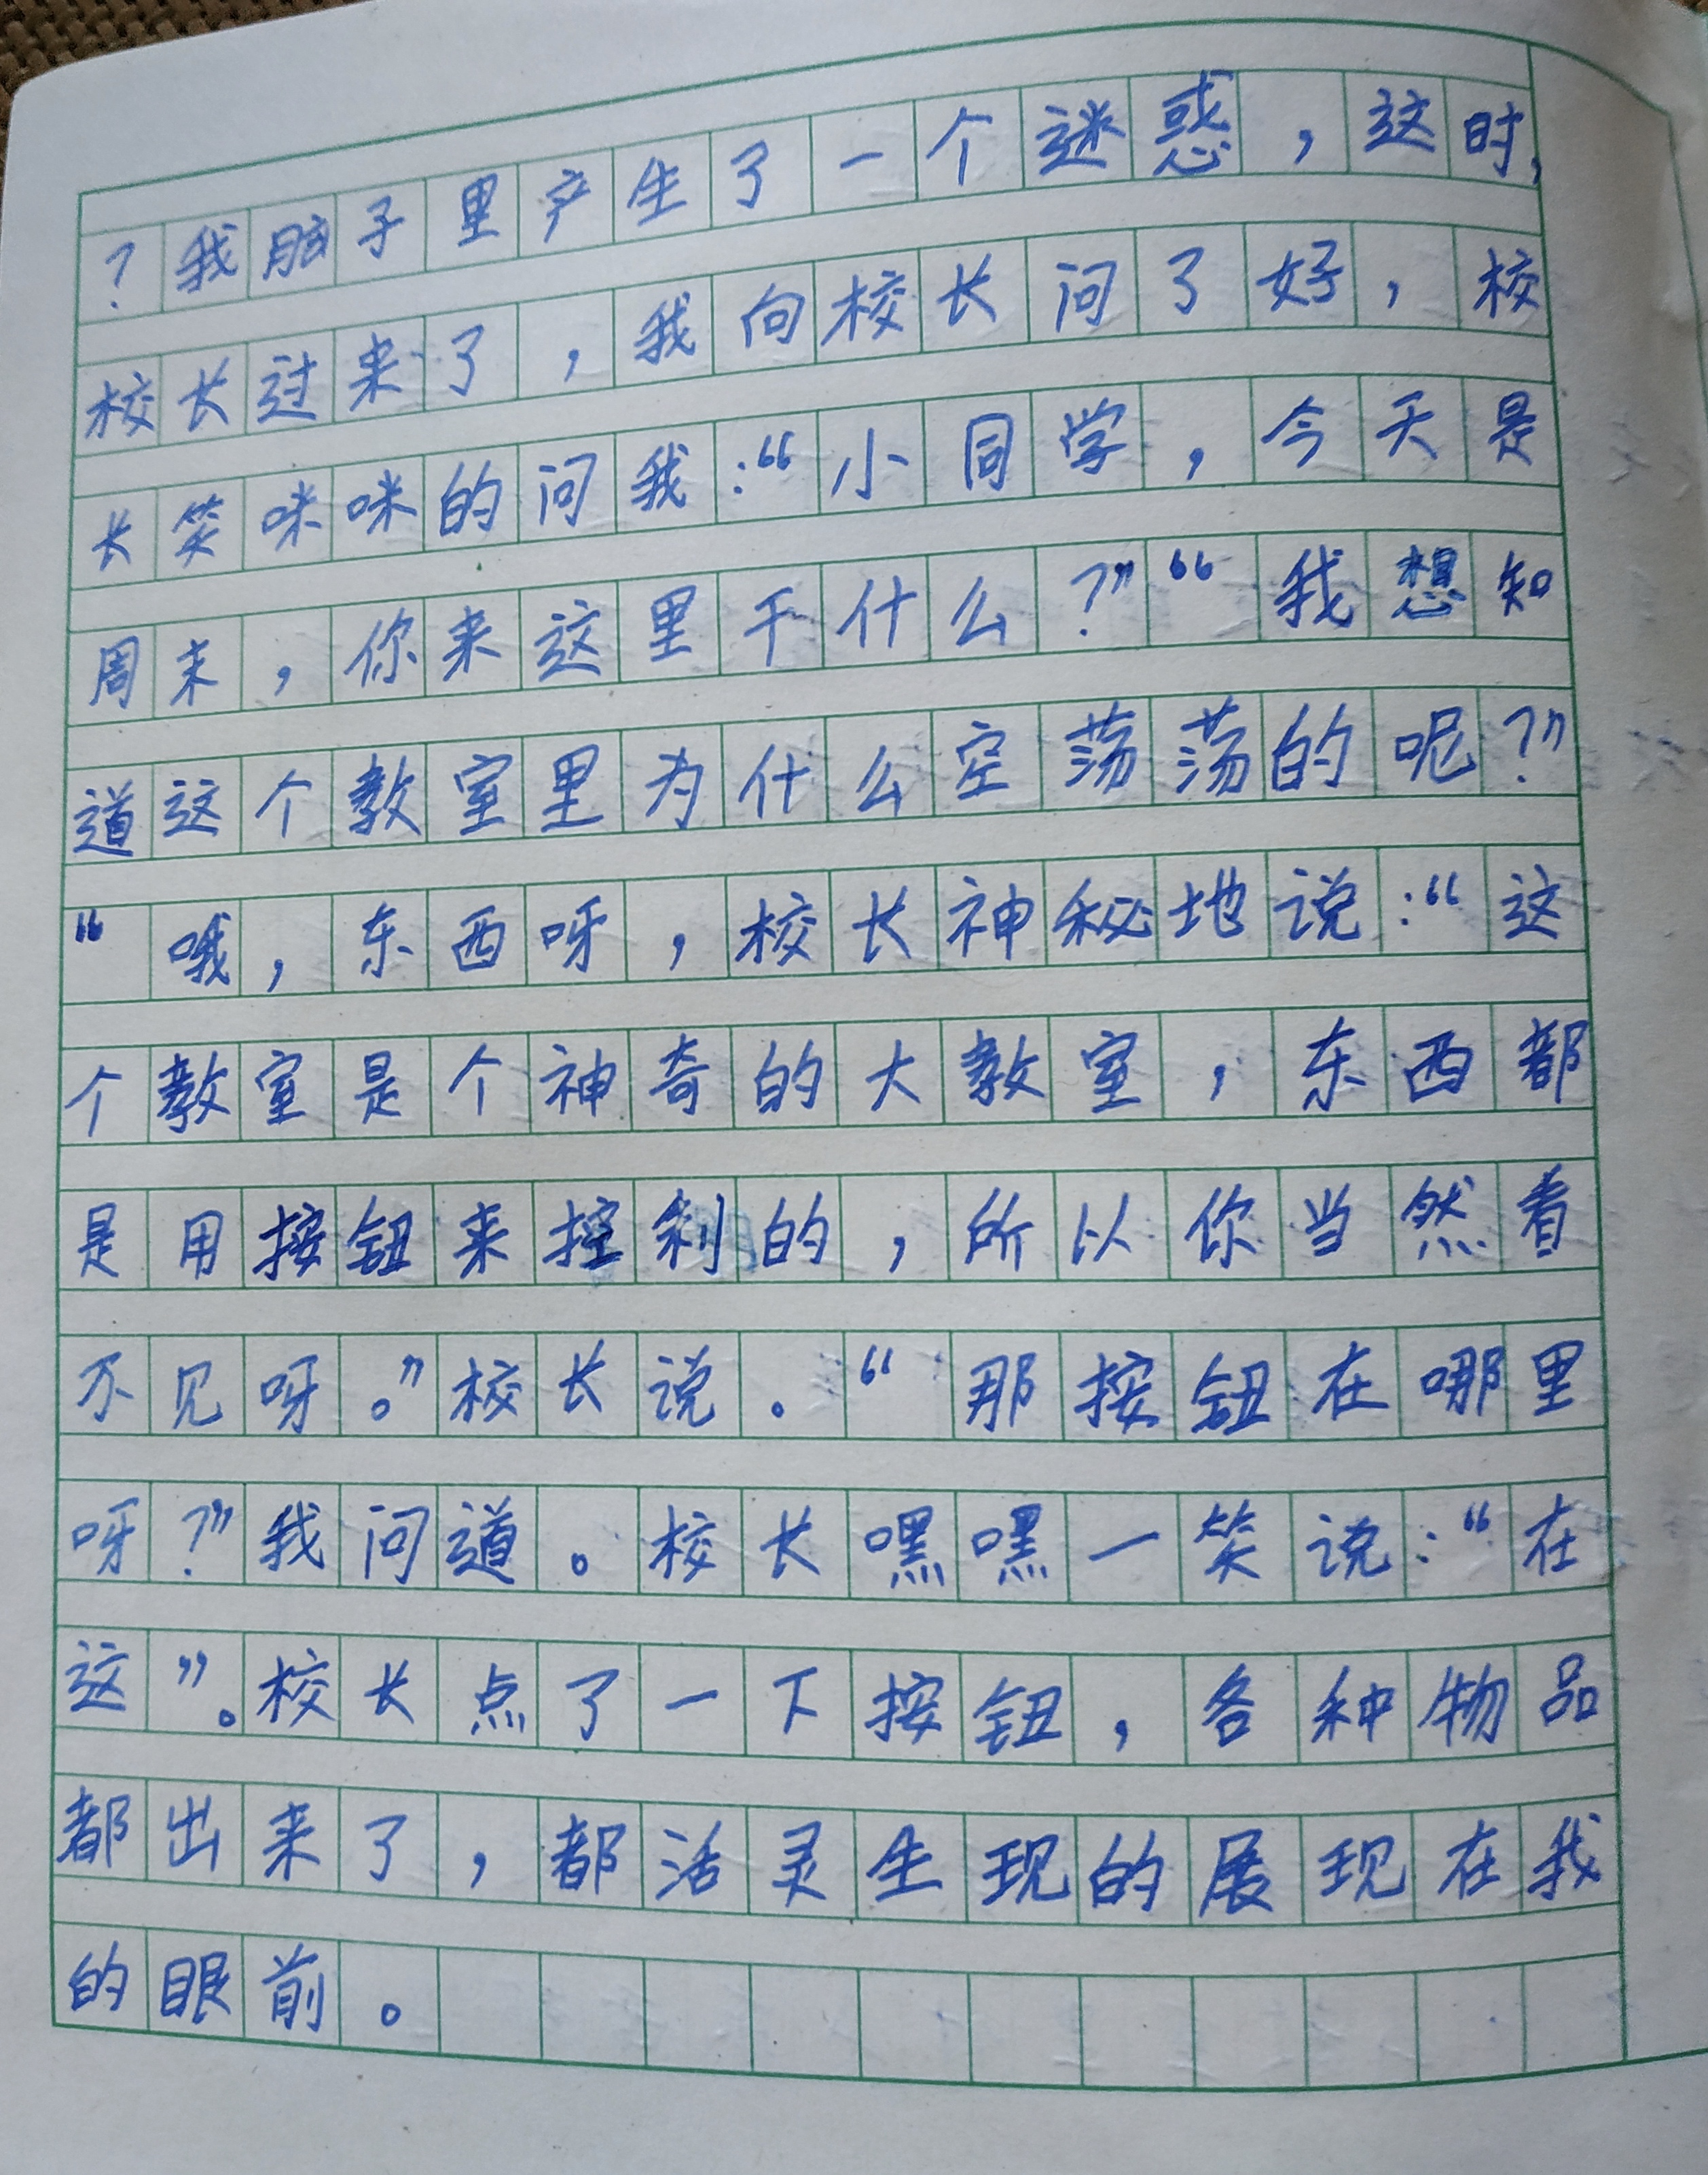 ？我脑子里产生了一个谜惑，这时，
校长过来了，我向校长问了好，校
长笑咪咪的问我：“小同学，今天是
周末，你来这里干什么？”“我想知
道这个教室里为什么空荡荡的呢？”
“哦，东西呀，校长神秘地说：“这
个教室是个神奇的大教室，东西都
是用按钮来控制的，所以你当然看
不见呀。”校长说。“那按钮在哪里
呀？”我问道。校长嘿嘿一笑说：“在
这”。校长点了一下按钮，各种物品
都出来了，都活灵生现的展现在我
的眼前。